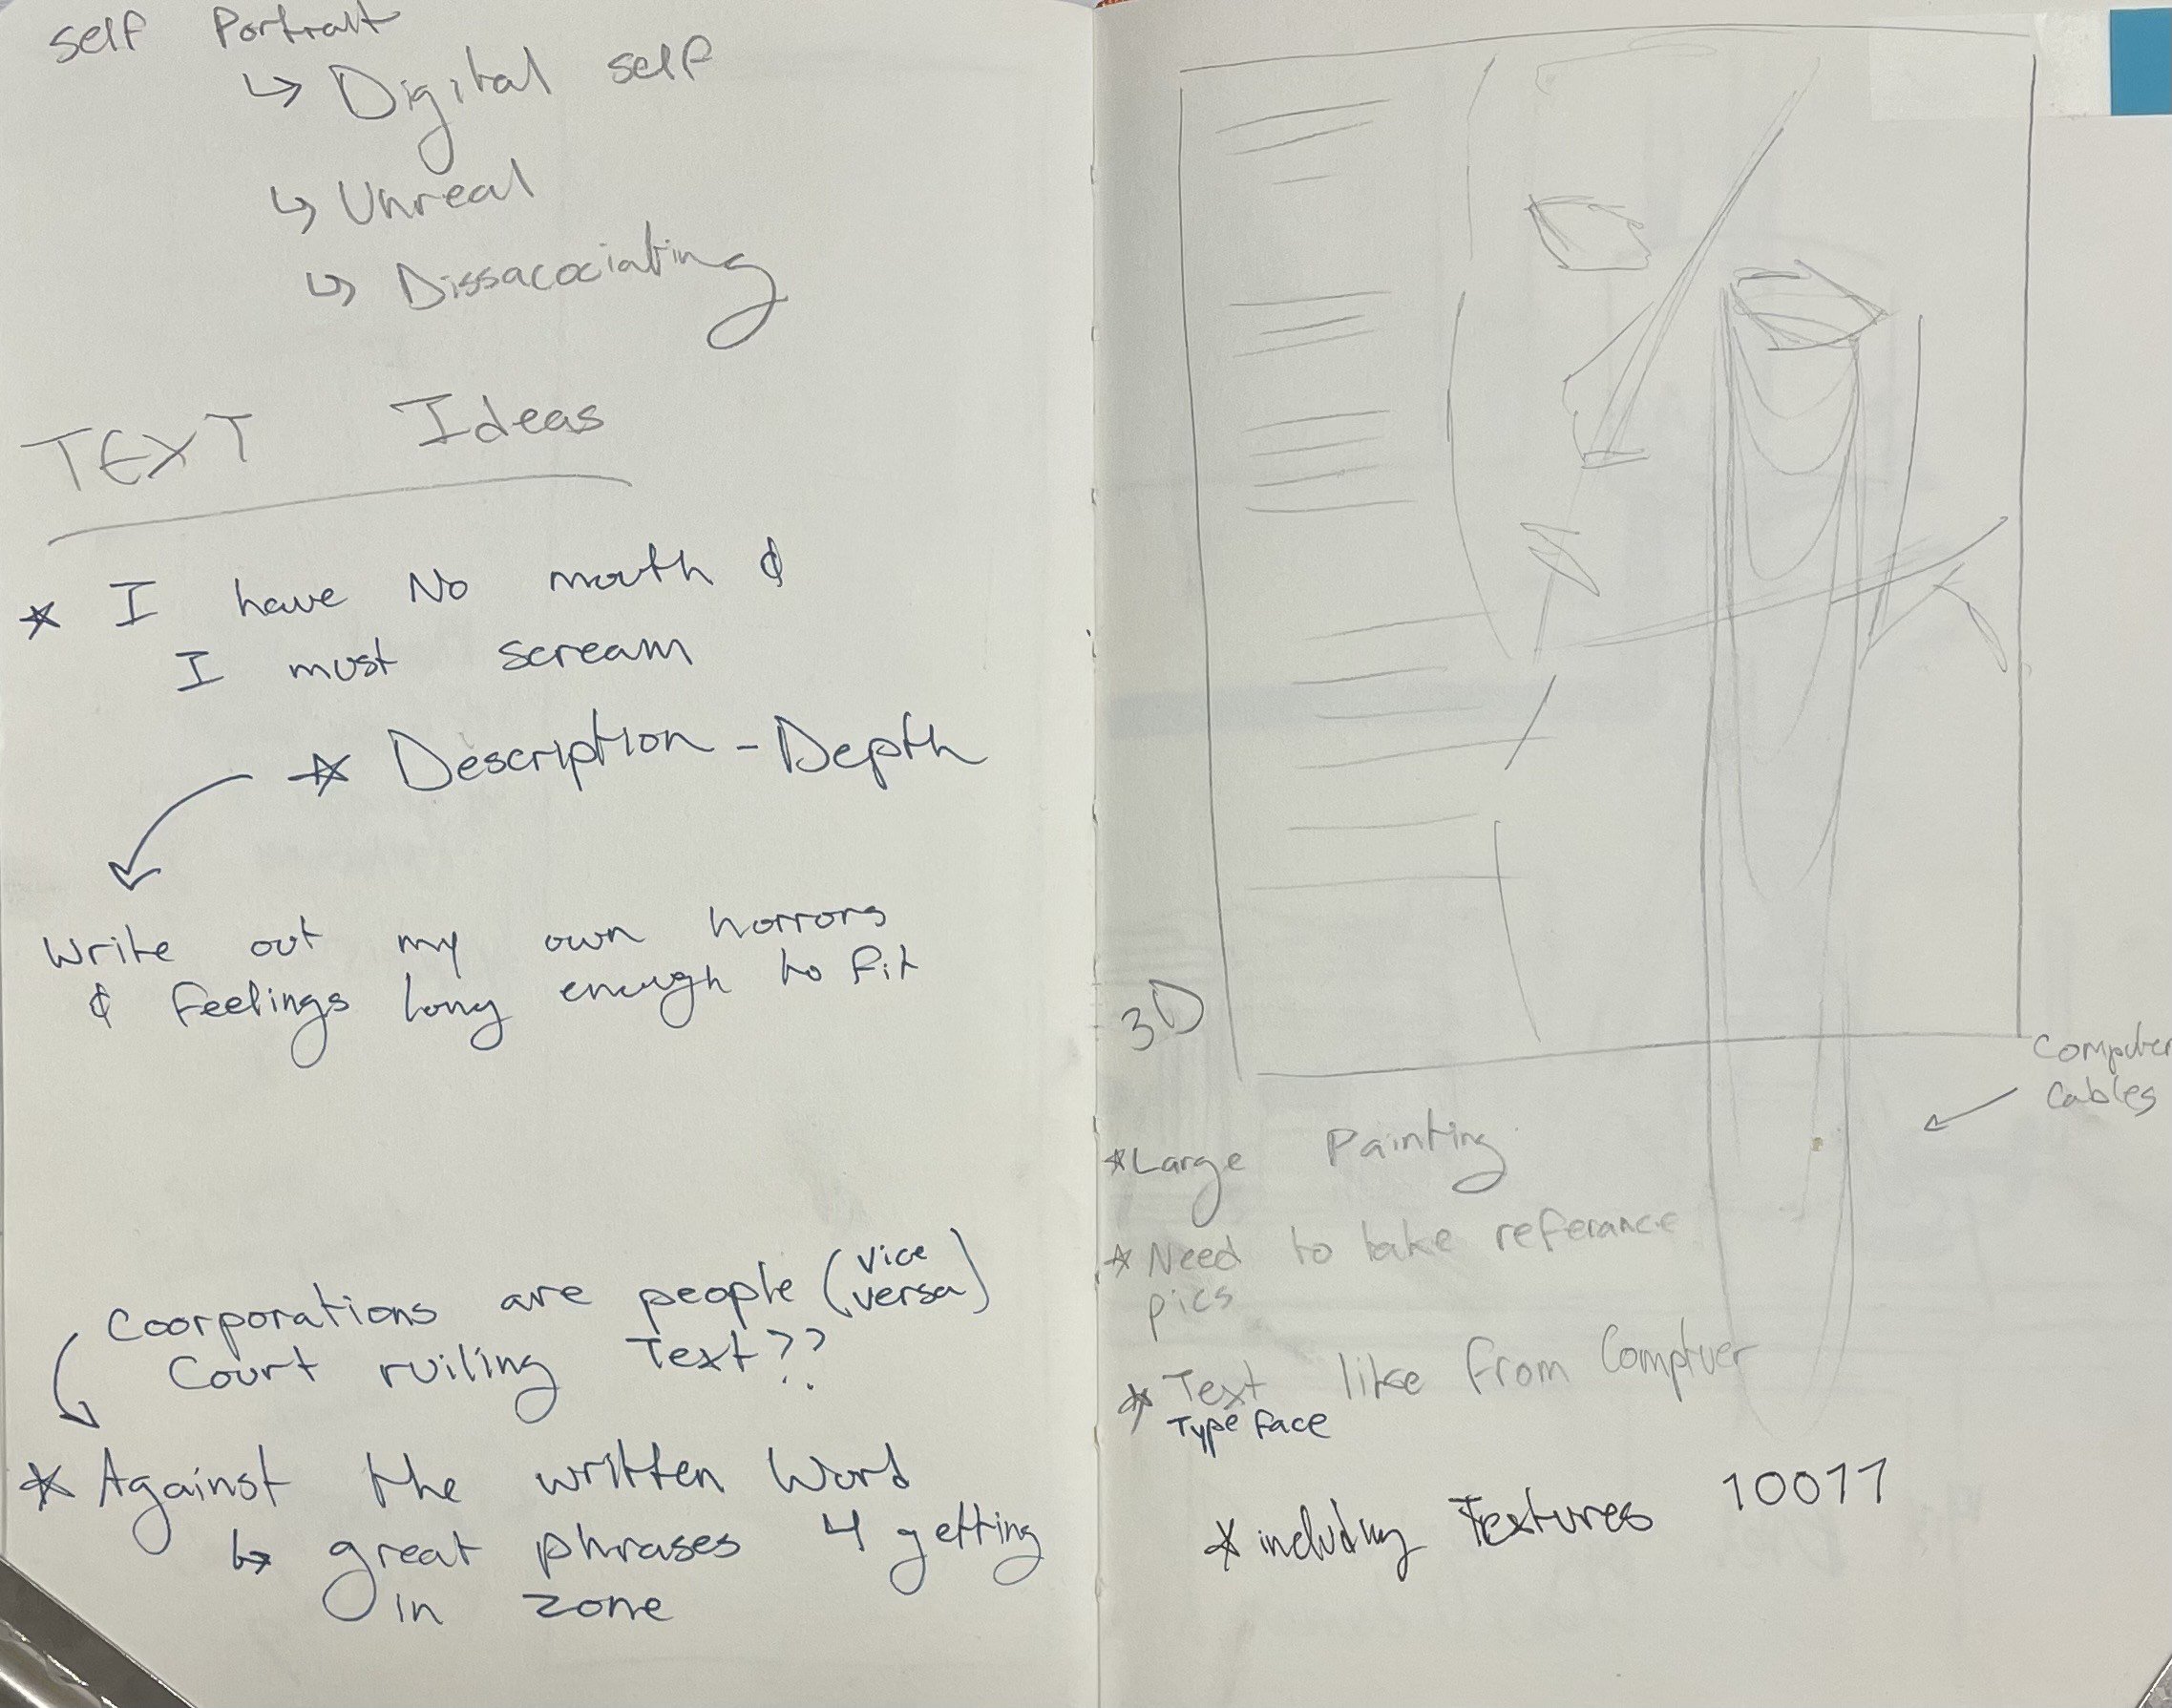 Self Portrait
↳ Digital self
↳ Unreal
↳ Dissacociating
TEXT Ideas
* I have No mouth &
I must scream
* Description - Depth
Write out my own horrors
& feelings long enough to fit
Coorporations are people (vice versa)
Court ruiling Text??
* Against the written Word
↳ great phrases 4 getting
in zone
3D
Computer
Cables
* Large Painting
* Need to take referance
pics
* Text like from Comptuer
Type face
* including Textures 10011